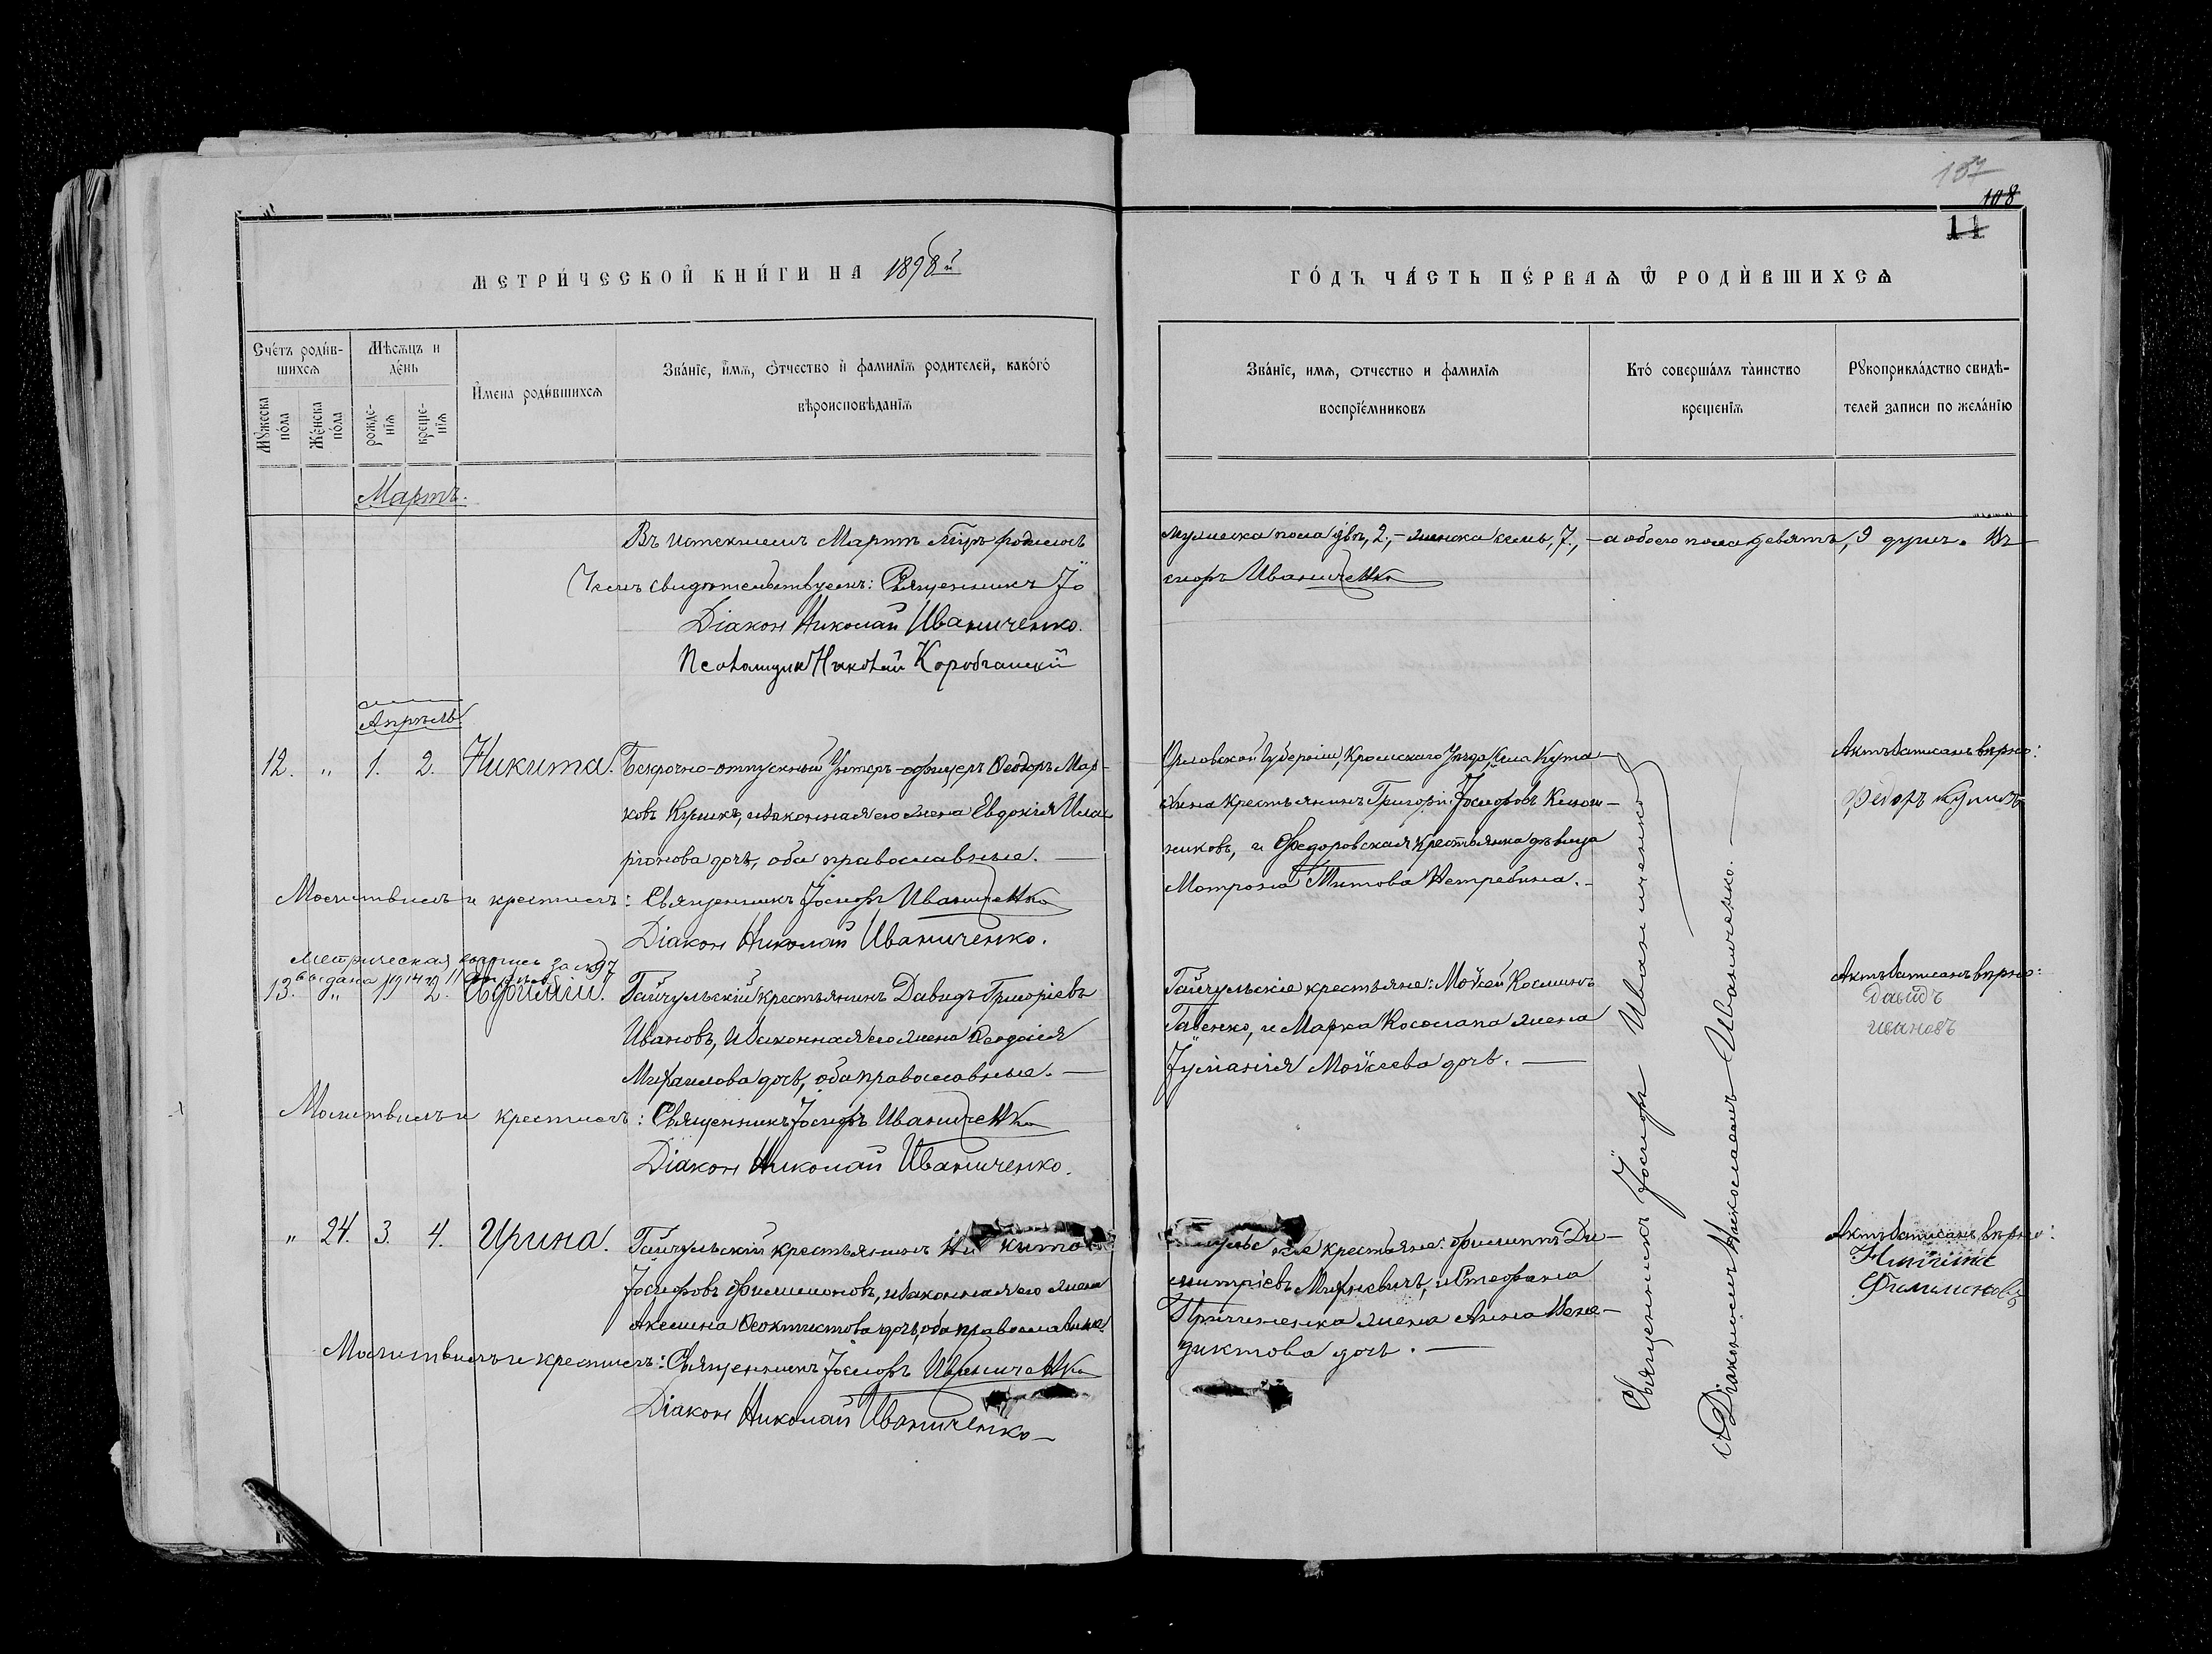 107
108
11
МЕТРИ́ЧЕСКОЙ КНИ́ГИ НА 1898й
ГО́ДЪ ЧА́СТЬ ПЕ́РВАѦ Ѿ РОДИ́ВШИХСѦ
Сче́тъ роди́в-
шихсѧ
Мѣ́сѧцъ и
де́нь
Мꙋ́жеска
по́ла
Же́нска
по́ла
рожде-
нїѧ
креще-
нїѧ
И҆мена роди́вшихсѧ
Зва́нїе, и҆́мѧ, ѻ҆́тчество и҆ фамилїѧ родителей, како́гѡ
вѣроисповѣданїѧ
Зва́нїе, имѧ, ѻтчество и фамилїѧ
воспрїе́мниковъ
Кто́ соверша́лъ та̀инство
креще́нїѧ
Рꙋкоприкла́дство свидѣ-
телей записи по жела́нїю
Мартъ.
Въ истекшемъ Мартѣ м-цѣ родилось
мужеска пола два, 2, - женска семь, 7, - а обоего пола девять, 9 душъ. Въ
Чемъ свидѣтельствуемъ: Священникъ Іо
сифъ Иваниченко
Діаконъ Николай Иваниченко.
Псаломщикъ Николай
Апрѣль
12. „ 1. 2. Никита. Безсрочно-отпускный Унтеръ-офицеръ Ѳеодоръ Мар-
ковъ, и законная его жена Евдокія Ила-
ріонова дочь, оба православные. —
Орловской Губерніи, Кромскаго Уѣзда, Села
крестьянинъ Григорій Іосифовъ
никовъ, и Ѳедоровская крестьянка дѣвица
Матрона Титова Нетребина. -
Актъ записанъ вѣрно:
федоръ
Молитвилъ и крестилъ: Священникъ Іосифъ Иваниченко
Діаконъ Николай Иваниченко.
Метрическая выпись за № 97
выдана
13. „ 2. Афимій. Гайчульскій крестьянинъ Давидъ Григоріевъ
Ивановъ, и законная его жена Ѳеодосія
Михаилова дочь, оба православные. —
Гайчульскіе крестьяне: Моѵсей Косминъ
и Марка Косолапа жена
Іуліанія Моѵсеева дочь. —
Актъ записанъ вѣрно:
давидъ
ивановъ
Молитвилъ и крестилъ: Священникъ Іосифъ Иваниченко
Діаконъ Николай Иваниченко.
„ 24. 3. 4. Ирина. Гайчульскій крестьянинъ Никита
Іосифовъ Филимоновъ, и законная его жена
Акелина Ѳеоктистова дочь, оба православные.
крестьяне: Филиппъ Ди-
митріевъ Михневичъ, и Стефана
жена Анна Вене-
диктова дочь. —
Актъ записанъ вѣрно:
Никита
Филимоновъ
Молитвилъ и крестилъ: Священникъ Іосифъ Иваниченко
Діаконъ Николай Иваниченко
Священникъ Іосифъ Иваниченко
съ Діакономъ Николаемъ Иваниченко. —